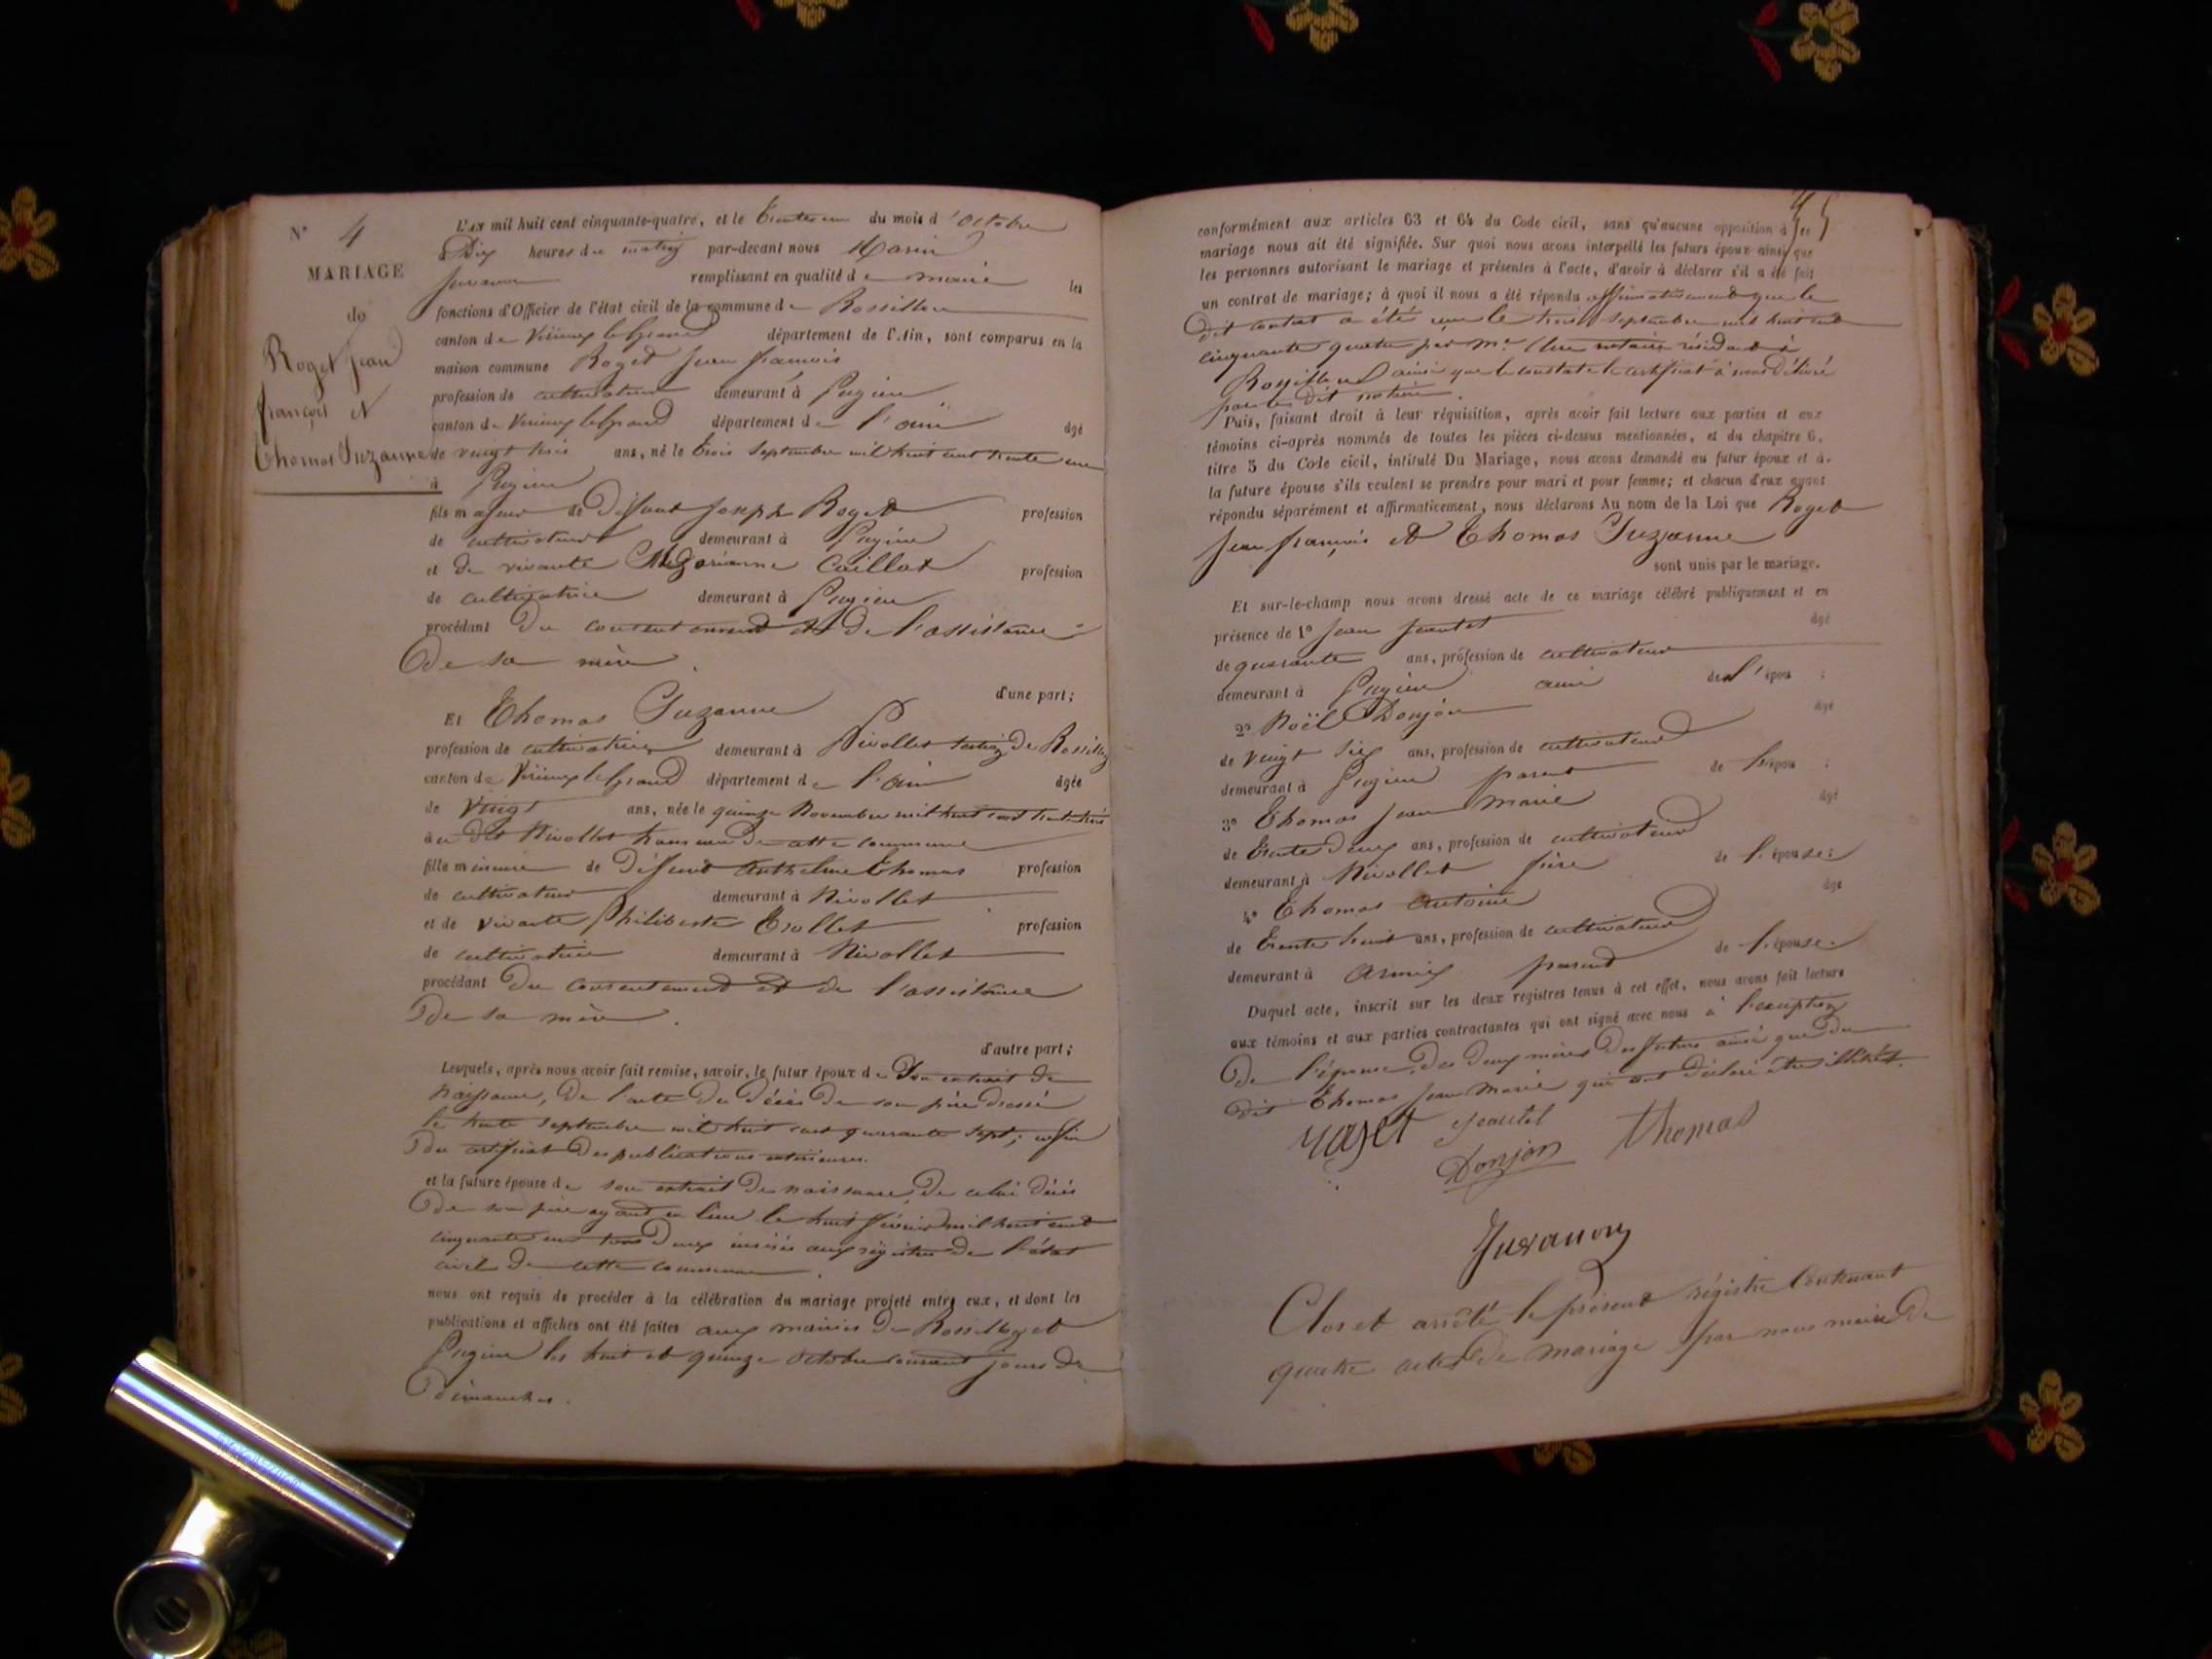 N° 4
MARIAGE
de
Roget jean
françois et
Thomas Suzanne
L'AN mil huit cent cinquante-quatre, et le trente un du mois d'octobre
à Dix heures du matin par-devant nous Marin
Juvanon remplissant en qualité de maire les
fonctions d'Officier de l'état civil de la commune de Rossillon
canton de Virieux le Grand département de l'Ain, sont comparus en la
maison commune Roget Jean françois
profession de cultivateur demeurant à Pugieu
canton de Virieux le Grand département de l'ain âgé
de vingt trois ans, né le trois septembre mil huit cent trente un
à Pugieu
fils majeur de Défunt Joseph Roget profession
de cultivateur demeurant à Pugieu
et de vivante Caillat profession
de cultivatrice demeurant à Pugieu
procédant du consentement et de l'assistance
De sa mère.
d'une part;
Et Thomas Suzanne
profession de cultivatrice demeurant à Nivollet section de Rossillon
canton de Virieux le Grand département de l'ain âgée
de vingt ans, née le quinze Novembre mil huit cent trente trois
au dit Nivollet hameau de cette commune
fille mineure de Défunt Anthelme Thomas profession
de cultivateur demeurant à Nivollet
et de vivante Philiberte Trollet profession
de cultivatrice demeurant à Nivollet
procédant du consentement et de l'assistance
De sa mère.
d'autre part;
Lesquels, après nous avoir fait remise, savoir, le futur époux de Son extrait de
naissance, de l'acte du décès de son père dressé
le trente septembre mil huit cent quarante sept; enfin
du certificat des publications extérieures.
et la future épouse de son extrait de naissance, de celui décès
De son père ayant eu lieu le huit février mil huit cent
cinquante un tous deux insérés aux régistres de l'état
civil de cette commune.
nous ont requis de procéder à la célébration du mariage projeté entre eux, et dont les
publications et affiches ont été faites aux mairies de Rossillon et
Pugieu les huit et quinze octobre courant jours de
Dimanches.
45
conformément aux articles 63 et 64 du Code civil, sans qu'aucune opposition à ces
mariage nous ait été signifiée. Sur quoi nous avons interpellé les futurs époux ainsi que
les personnes autorisant le mariage et présentes à l'acte, d'avoir à déclarer s'il a été fait
un contrat de mariage; à quoi il nous a été répondu affirmativement que le
dit contrat a été reçu le trois septembre mil huit cent
cinquante quatre par Me notaire résidant à
Rossillon ainsi que le constate le certificat à nous délivré
par le dit notaire.
Puis, faisant droit à leur réquisition, après avoir fait lecture aux parties et aux
témoins ci-après nommés de toutes les pièces ci-dessus mentionnées, et du chapitre 6,
titre 5 du Code civil, intitulé Du Mariage, nous avons demandé au futur époux et à
la future épouse s'ils veulent se prendre pour mari et pour femme; et chacun d'eux ayant
répondu séparément et affirmativement, nous déclarons Au nom de la Loi que Roget
Jean françois et Thomas Suzanne
sont unis par le mariage.
Et sur-le-champ nous avons dressé acte de ce mariage célébré publiquement et en
présence de 1° Jean Jeantet âgé
de quarante ans, profession de cultivateur
demeurant à Pugieu ami de l'épou ;
2° Noël Donjon âgé
de vingt six ans, profession de cultivateur
demeurant à Pugieu parent de l'épou ;
3° Thomas Jean Marie âgé
de trente deux ans, profession de cultivateur
demeurant à Nivollet frère de l'épouse;
4° Thomas Antoine âgé
de trente huit ans, profession de cultivateur
demeurant à Armix parent de l'épouse.
Duquel acte, inscrit sur les deux registres tenus à cet effet, nous avons fait lecture
aux témoins et aux parties contractantes qui ont signé avec nous à l'exception
De l'épouse, des deux mères des futurs ainsi que du
dit Thomas Jean Marie qui ont déclaré être illétrés.
roget jeantet
Donjon thomas
Juvanon
Clos et arrêté le présent régistre contenant
quatre actes de mariage par nous maire de